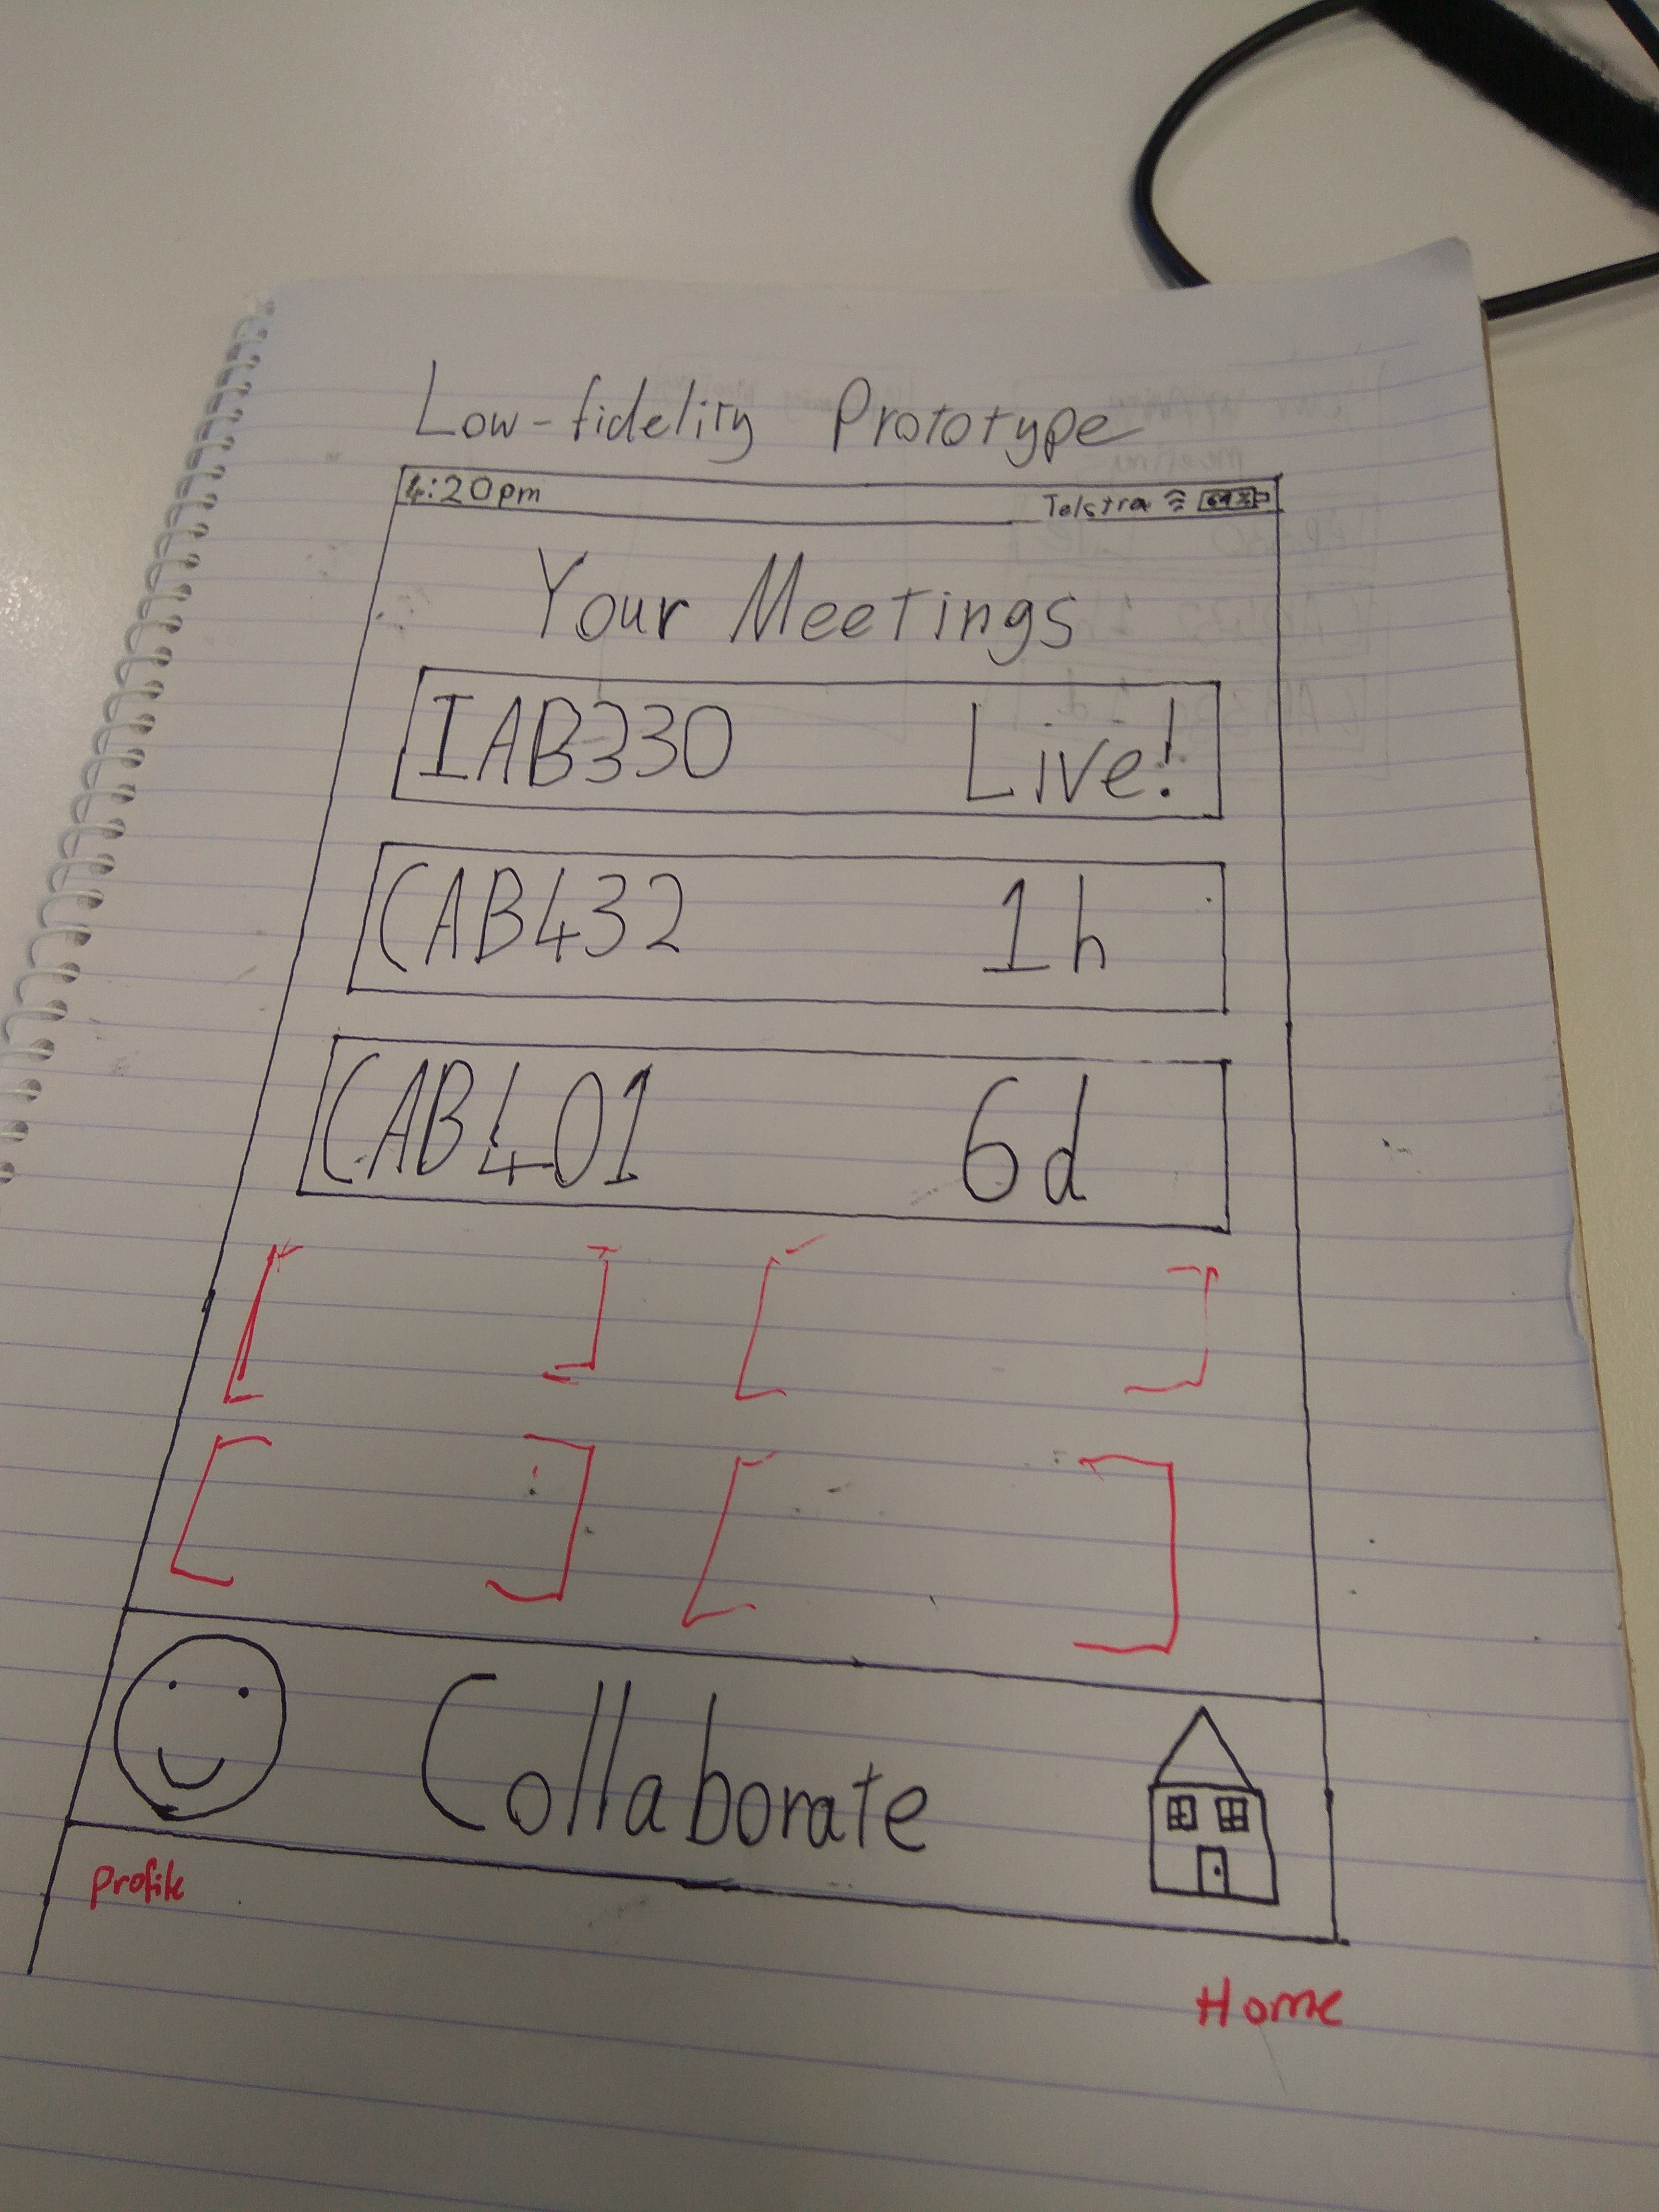 Low-fidelity Prototype
4:20pm Telstra 69%
Your Meetings
IAB330 Live!
CAB432 1h
CAB401 6d
Collaborate
Profile
Home